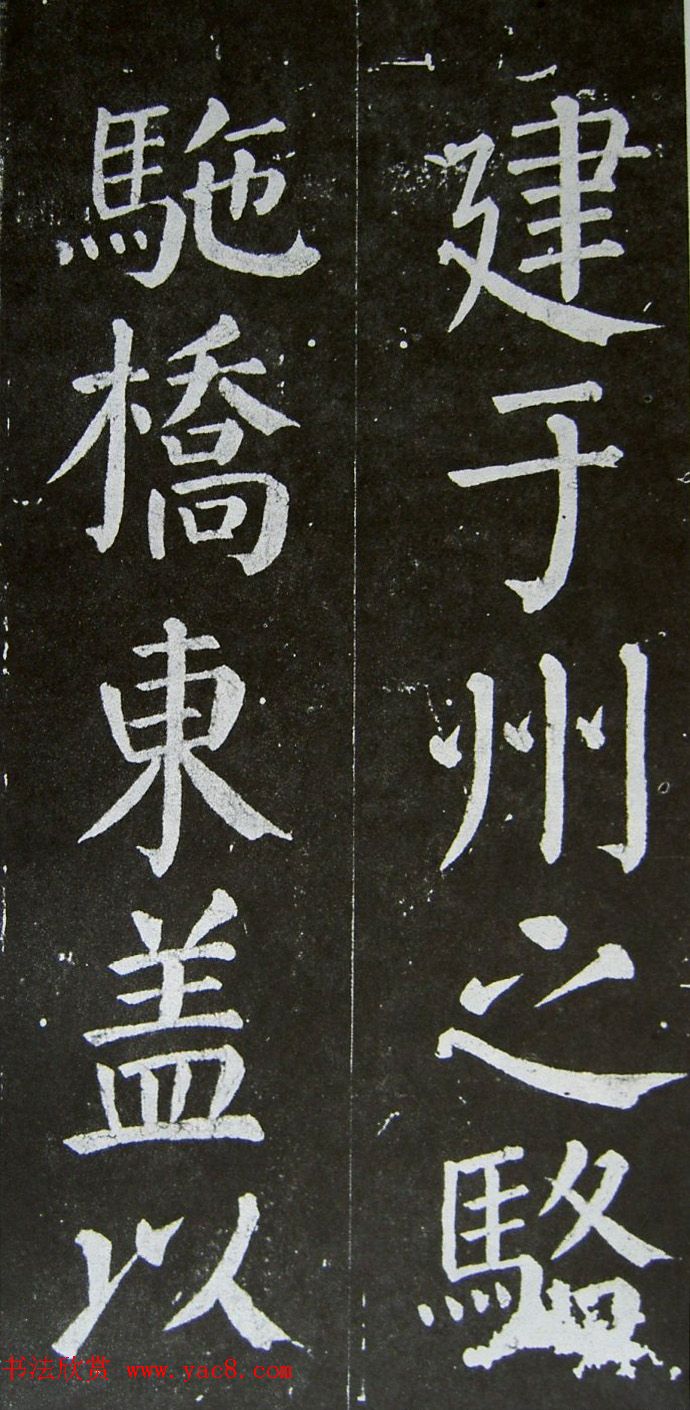 建于州之駱
駞橋東盖以
书法欣赏 www.yac8.com